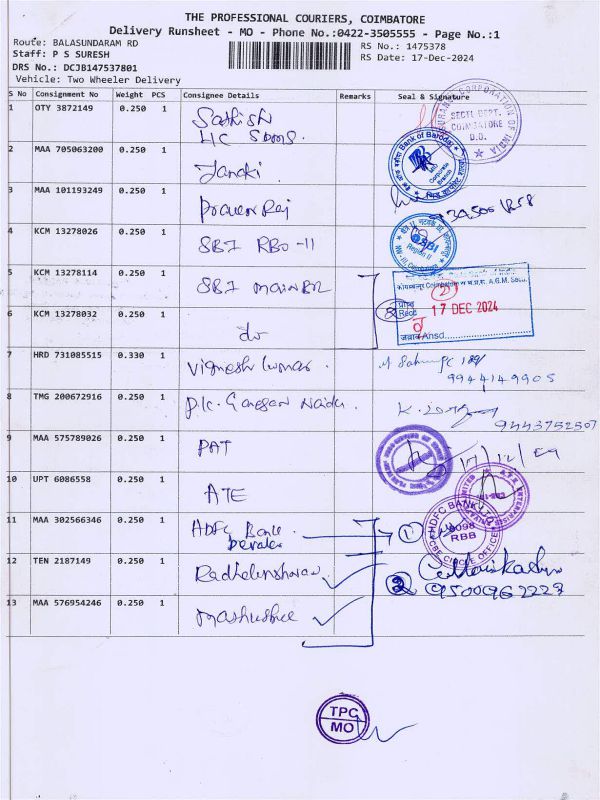 THE PROFESSIONAL COURIERS, COIMBATORE
Delivery Runsheet - MO - Phone No.:0422-3505555 - Page No.:1
Route: BALASUNDARAM RD
Staff: P S SURESH
DRS No.: DCJB147537801
Vehicle: Two Wheeler Delivery
RS No.: 1475378
RS Date: 17-Dec-2024
S No Consignment No Weight PCS Consignee Details Remarks Seal & Signature
1 OTY 3872149 0.250 1 Sathish
LIC
SECTL DEPT.
COIMBATORE
D.O.
2 MAA 705063200 0.250 1 Janaki
Bank of Baroda
Corporate
Branch
3 MAA 101193249 0.250 1 Praveen Raj
4 KCM 13278026 0.250 1 SBI RBO-II
SBI
Region II
5 KCM 13278114 0.250 1 SBI main BR
17 DEC 2024
6 KCM 13278032 0.250 1 do
7 HRD 731085515 0.330 1 Vignesh Kumar
9944149905
8 TMG 200672916 0.250 1 P.K. Ganesan Naidu
9443752507
9 MAA 575789026 0.250 1 PAT
17/12/24
10 UPT 6086558 0.250 1 ATE
11 MAA 302566346 0.250 1 HDFC Bank
1
HDFC BANK LTD
9098
RBB
CBE CIRCLE OFFICE
12 TEN 2187149 0.250 1 Radhakrishnan
2
9500962223
13 MAA 576954246 0.250 1 Mathushree
TPC
MO